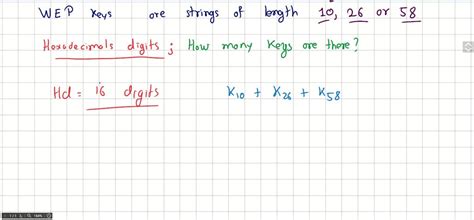 WEP keys are strings of length 10, 26 or 58
Hexadecimals digits ; How many keys are there?
Hd = 16 digits K10 + K26 + K58